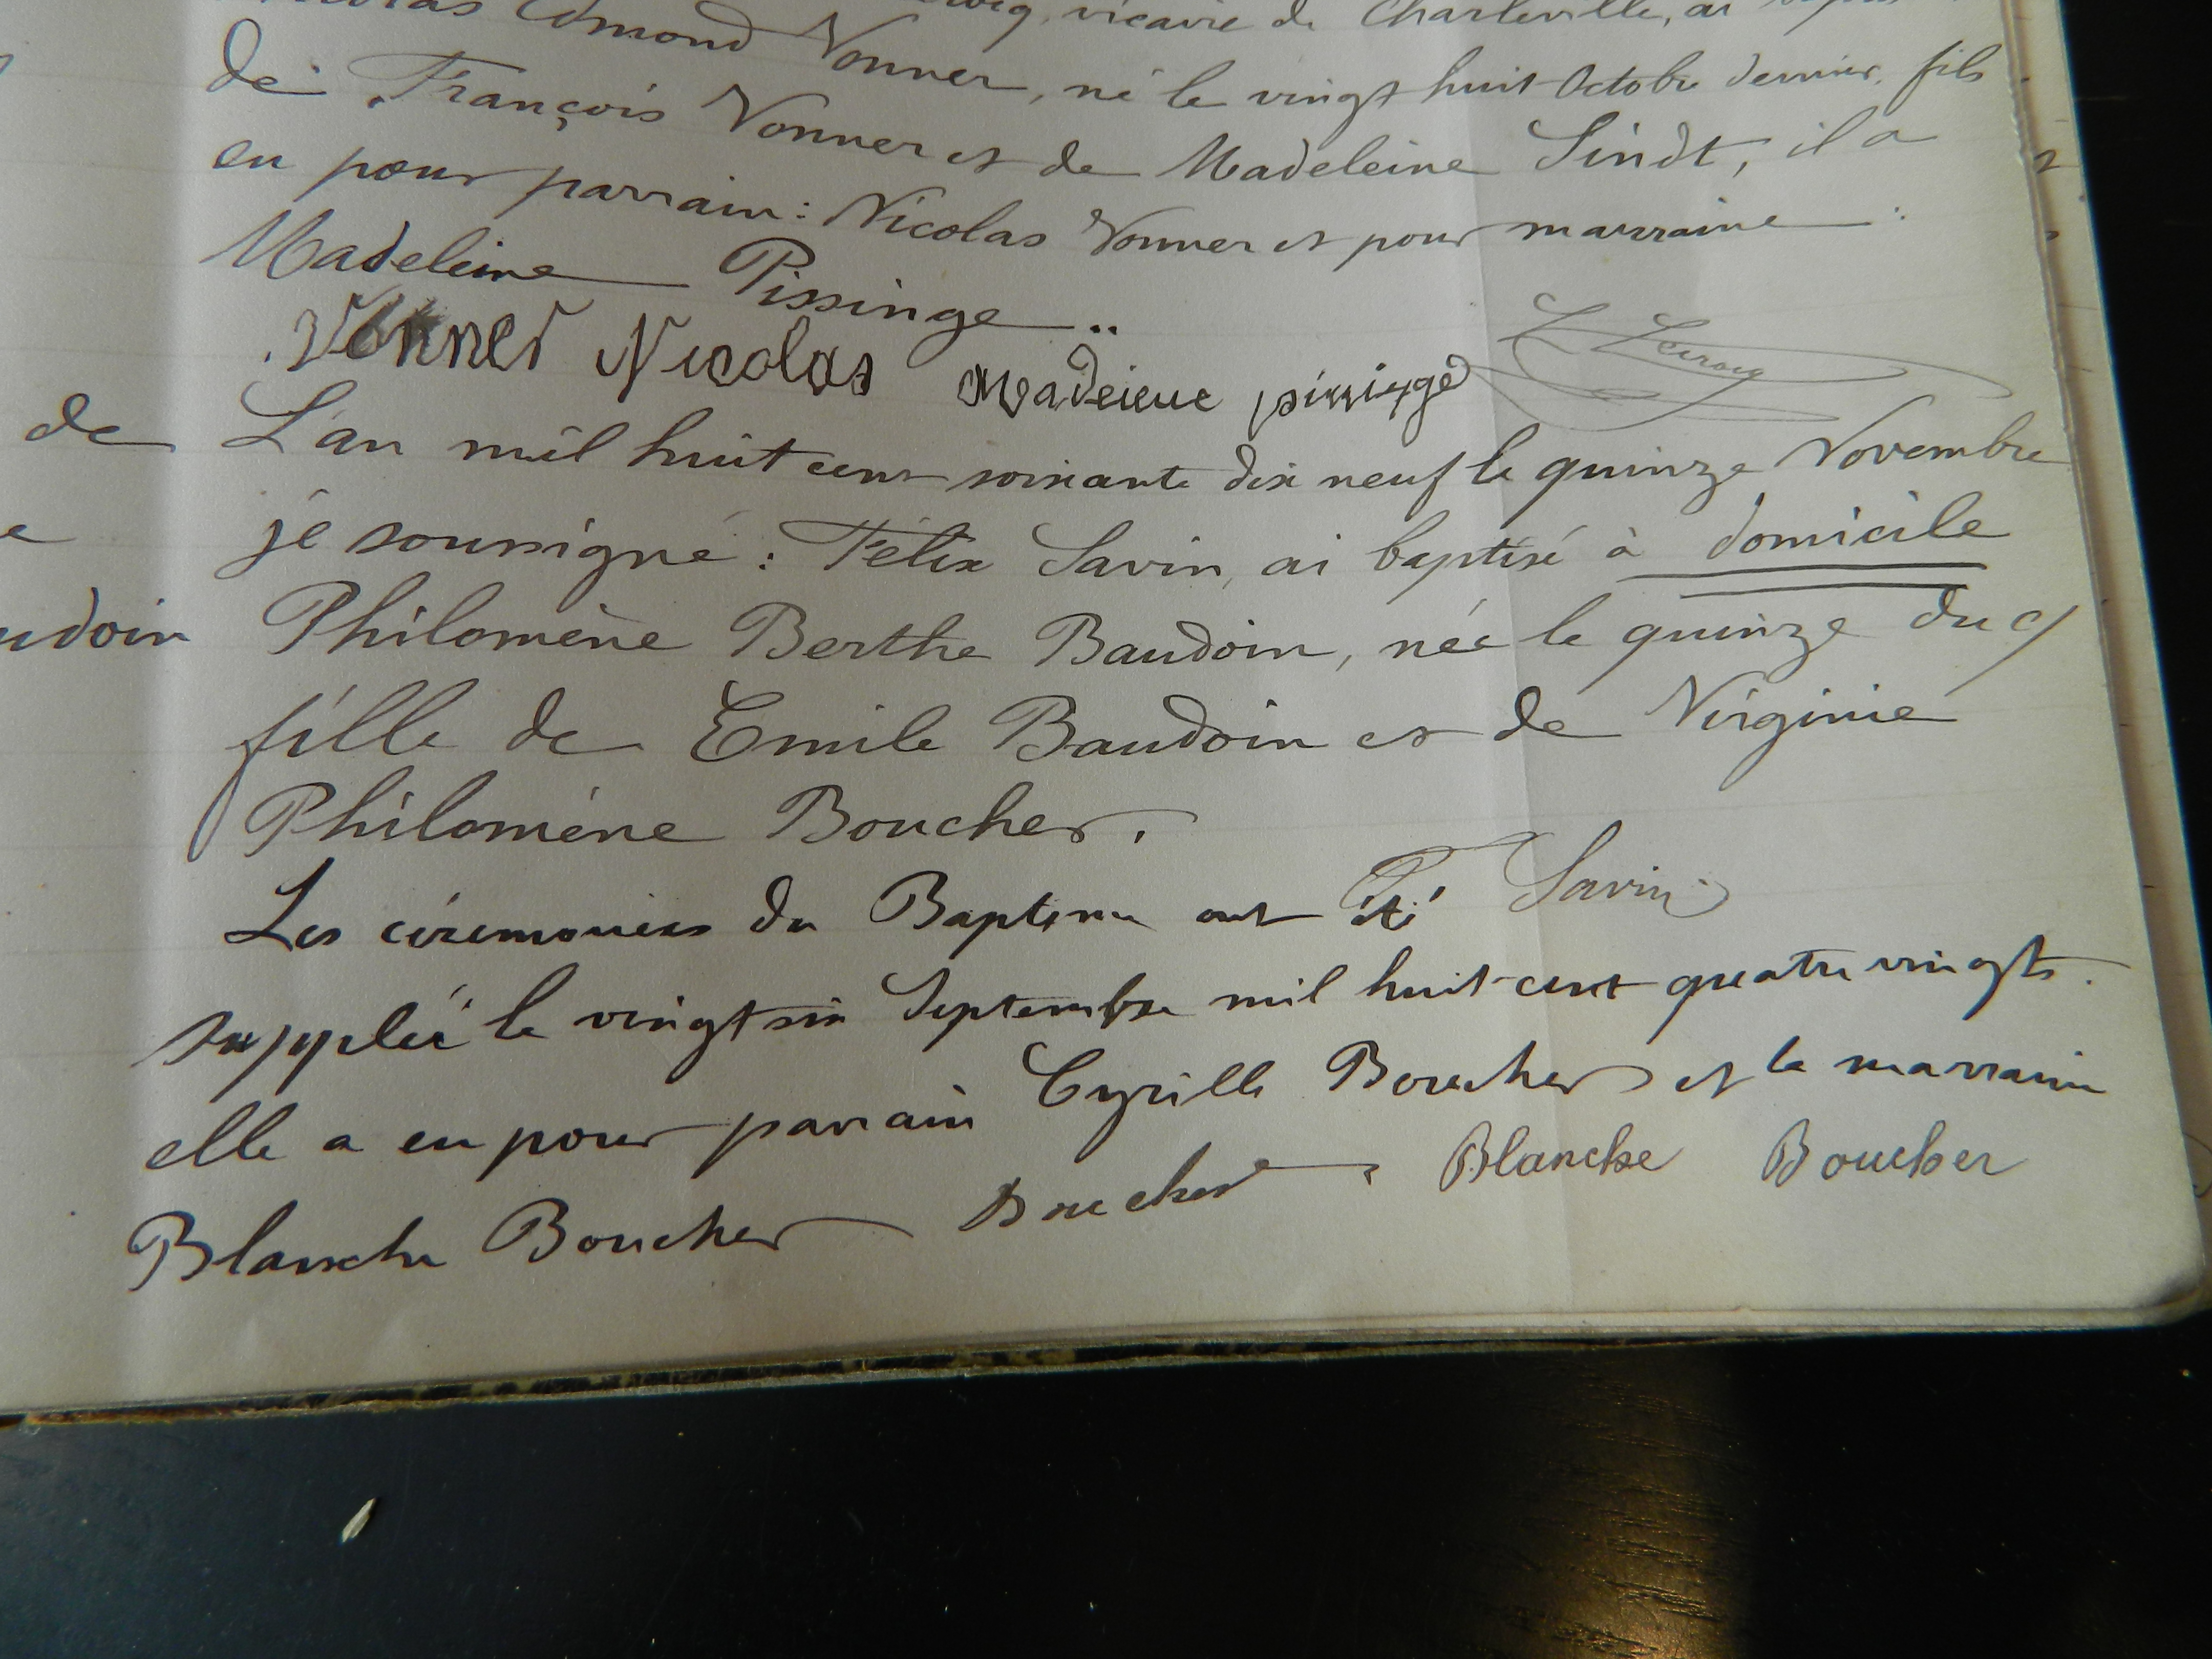 Nicolas Edmond Vonner, né le vingt huit Octobre dernier, fils
vicaire de Charleville, ai
de François Vonner et de Madeleine Sindt, il a
eu pour parrain : Nicolas Vonner et pour marraine :
Madeleine Pissinge ..
Vonner Nicolas Madeleine pissinge L Leroiq
de L'an mil huit cent soixante dix neuf le quinze Novembre
je soussigné : Félix Savin, ai baptisé à domicile
udoin Philomène Berthe Baudoin, née le quinze du c/
fille de Emile Baudoin et de Virginie
Philomène Boucher.
F Savin
Les cérémonies du Baptême ont été
supplée le vingt six Septembre mil huit cent quatre vingts.
elle a eu pour parrain Cyrille Boucher et la marraine
Blanche Boucher Boucher Blanche Boucher